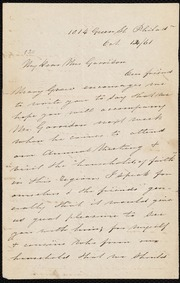 1014 Green St Philad
Oct 12/61
My dear Mrs Garrison
Our friend
Mary Grew encourages me
to write you to say that we
hope you will accompany
Mr Garrison next week
when he comes to attend
our Annual Meeting &
visit the "household of faith"
in this region. I speak for
ourselves & the friends gen-
erally that it would give
us great pleasure to see
you with him, for myself
& cousins who form our
household that we should